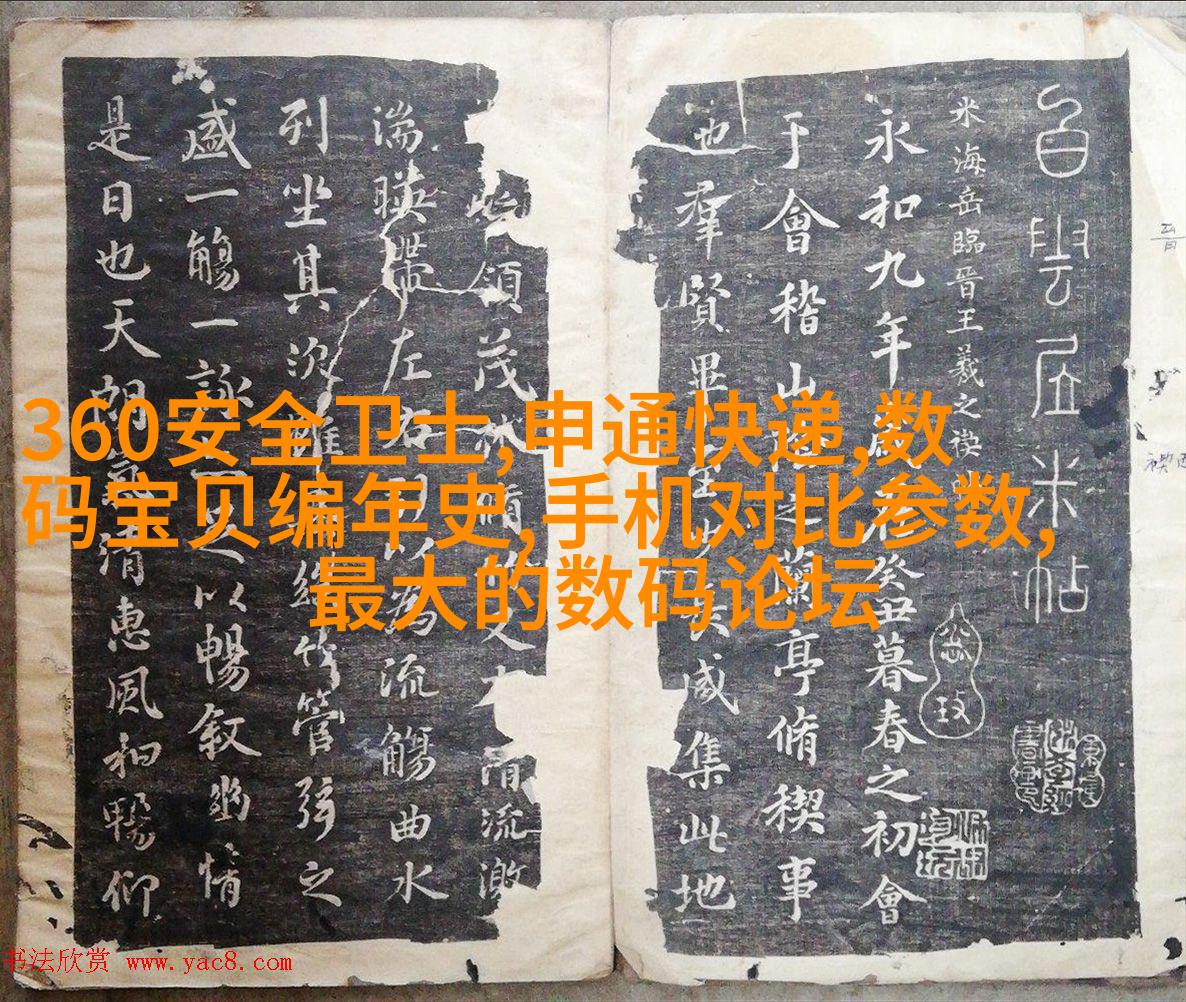 360安全卫士,申通快递,数
码宝贝编年史,手机对比参数,
最大的数码论坛
白雲居米帖
米海岳臨晉王羲之禊
永和九年歲在癸丑暮春之初會
于會稽山陰之蘭亭脩禊事
也羣賢畢至少長咸集此地
領茂林脩竹又有清流激
湍暎帶左右引以為流觴曲水
列坐其次雖無絲竹管弦之
盛一觴一詠足以暢叙幽情
是日也天朗氣清惠風和暢仰
书法欣赏 www.yac8.com